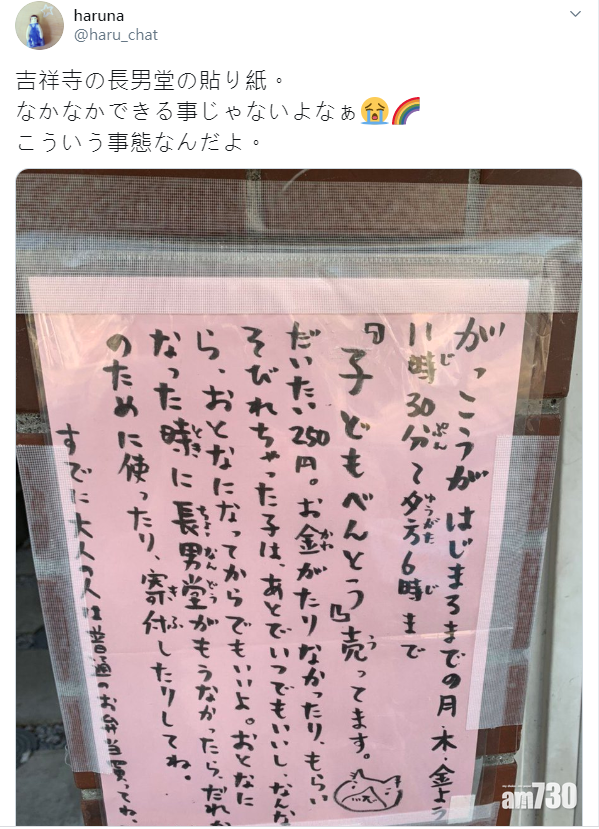 haruna
@haru_chat
吉祥寺の長男堂の貼り紙。
なかなかできる事じゃないよなぁ😭🌈
こういう事態なんだよ。
がっこうがはじまるまでの月・木・金よう
11時30分〜夕方6時まで
『子どもべんとう』売ってます。
だいたい250円。お金がたりなかったり、もらい
そびれちゃった子は、あとでいつでもいいし、なんな
ら、おとなになってからでもいいよ。おとなに
なった時に長男堂がもうなかったら、だれか
のために使ったり、寄付したりしてね。
すでに大人の人は普通のお弁当買ってね。
am730